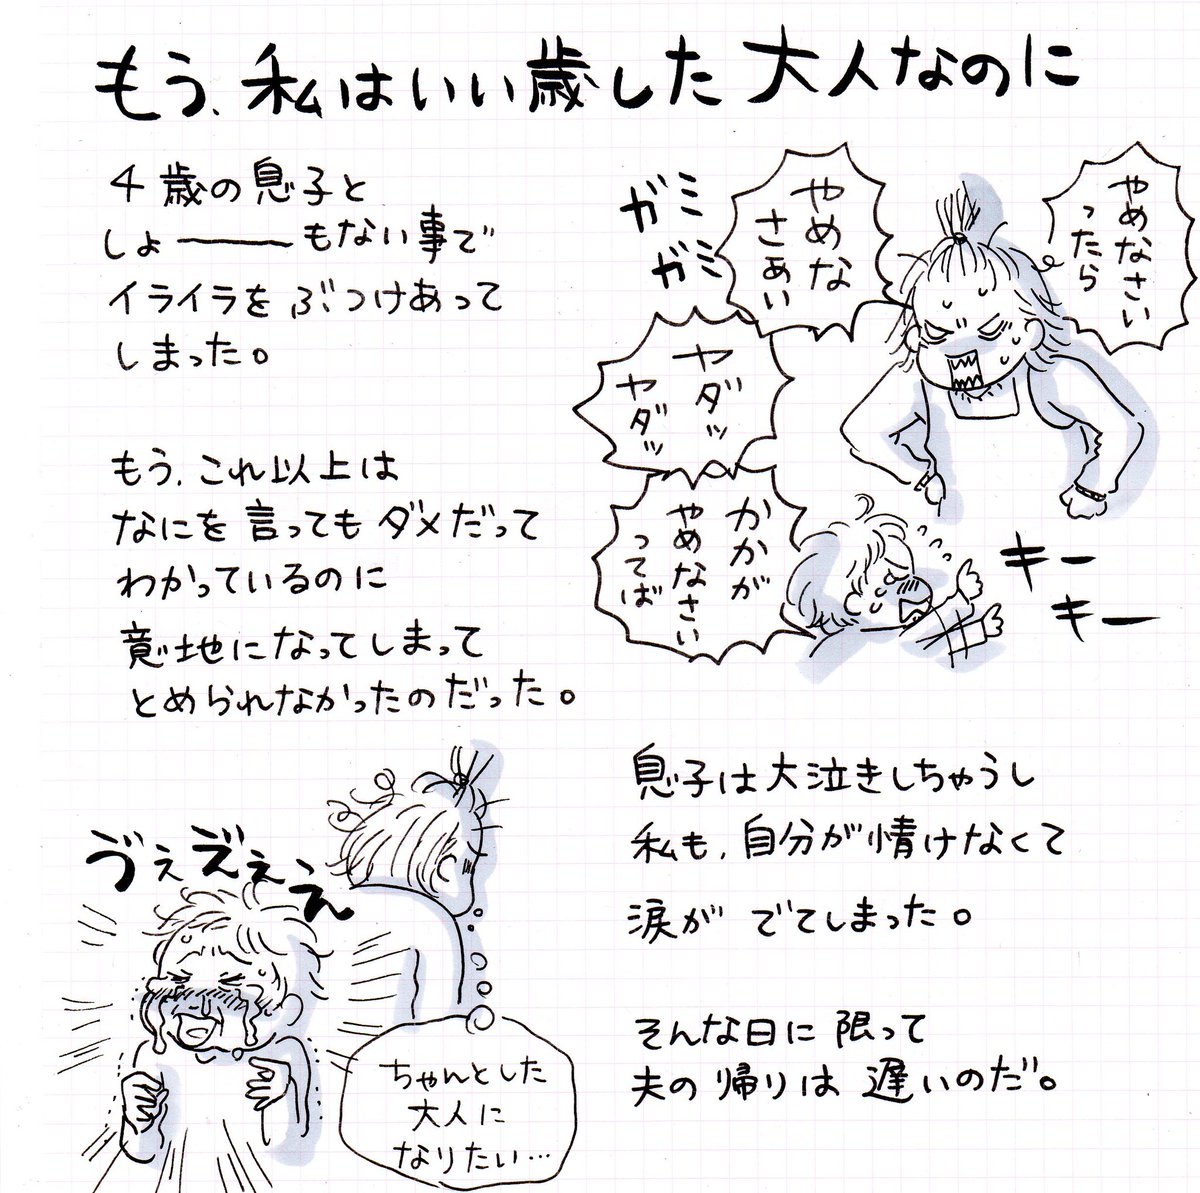 もう、私はいい歳した大人なのに
4歳の息子と
しょ――――もない事で
イライラをぶつけあって
しまった。
ガミ
ガミ
やめなさい
ったら
やめな
さぁい
ヤダッ
ヤダッ
かかが
やめなさい
ってば
キー
キー
もう、これ以上は
なにを言ってもダメだって
わかっているのに
意地になってしまって
とめられなかったのだった。
息子は大泣きしちゃうし
私も、自分が情けなくて
涙がでてしまった。
ゔぇぇぇぇん
ちゃんとした
大人に
なりたい…
そんな日に限って
夫の帰りは遅いのだ。